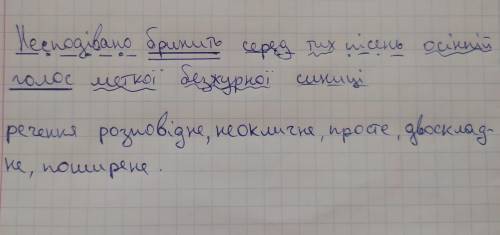 Несподівано бринить серед тих пісень осінній
голос меткої безжурної синиці
речення розповідне, неокличне, просте, двосклад-
не, поширене.